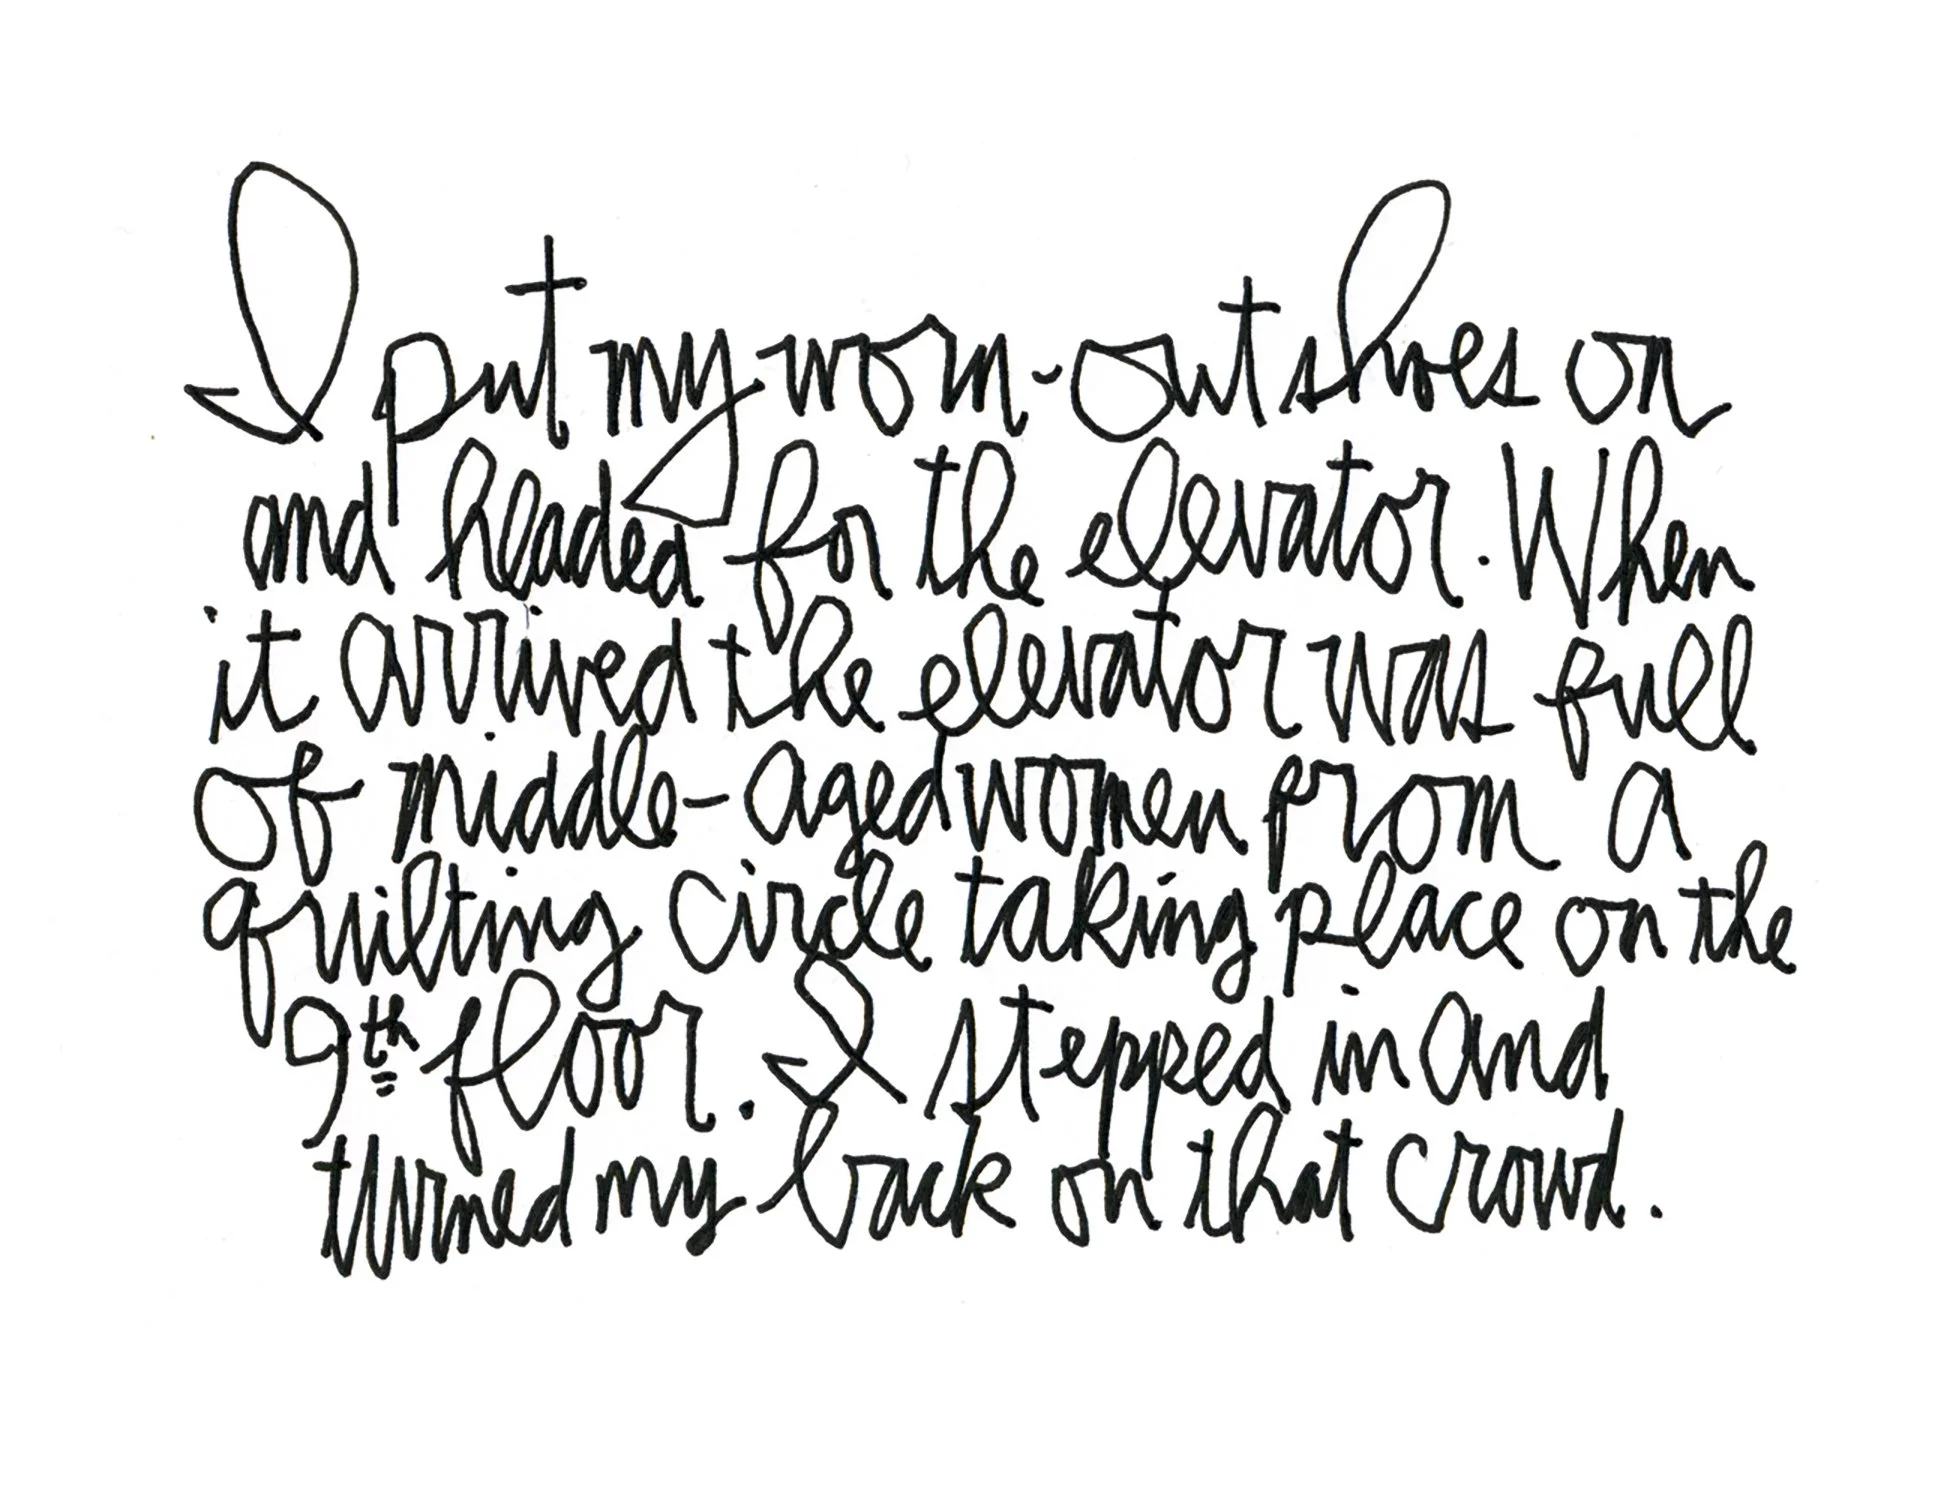 I put my worn-out shoes on
and headed for the elevator. When
it arrived the elevator was full
of middle-aged women from a
quilting circle taking place on the
9th floor. I stepped in and
turned my back on that crowd.